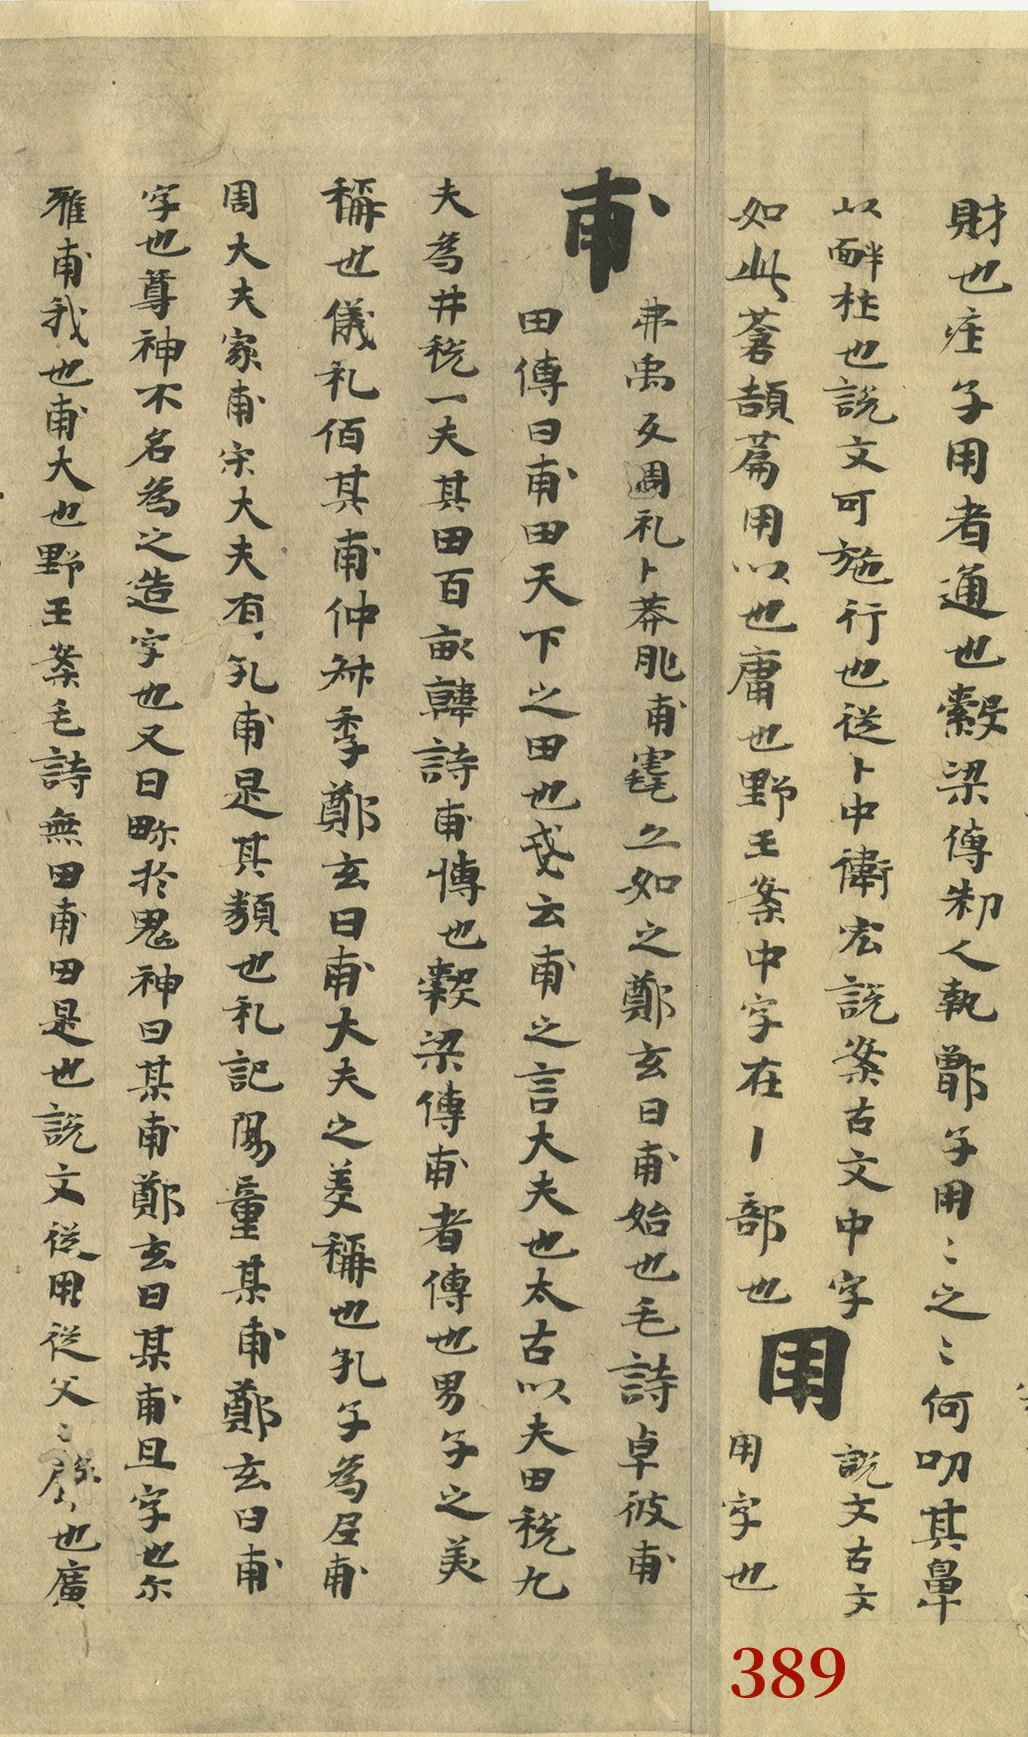 財也疰子用者通也糓梁傳邾人執鄫子用〻之〻何叩其鼻
以衈社也說文可施行也從卜中衛宏說案古文中字
如此蒼頡篇用以也庸也野王案中字在丨部也
𤰃
說文古文
用字也
甫
弗禹反周礼卜葬兆甫竁亦如之鄭玄曰甫始也毛詩卓彼甫
田傳曰甫田天下之田也戔云甫之言大夫也太古以夫田稅九
夫為井稅一夫其田百畝韓詩甫慱也糓梁傳甫者傳也男子之美
稱也儀礼伯其甫仲叔季鄭玄曰甫大夫之美稱也孔子為尼甫
周大夫家甫宋大夫有孔甫是其類也礼記陽童某甫鄭玄曰甫
字也尊神不名為之造字也又曰畛於鬼神曰某甫鄭玄曰某甫且字也尒
雅甫我也甫大也野王案毛詩無田甫田是也說文從用從父〻也廣